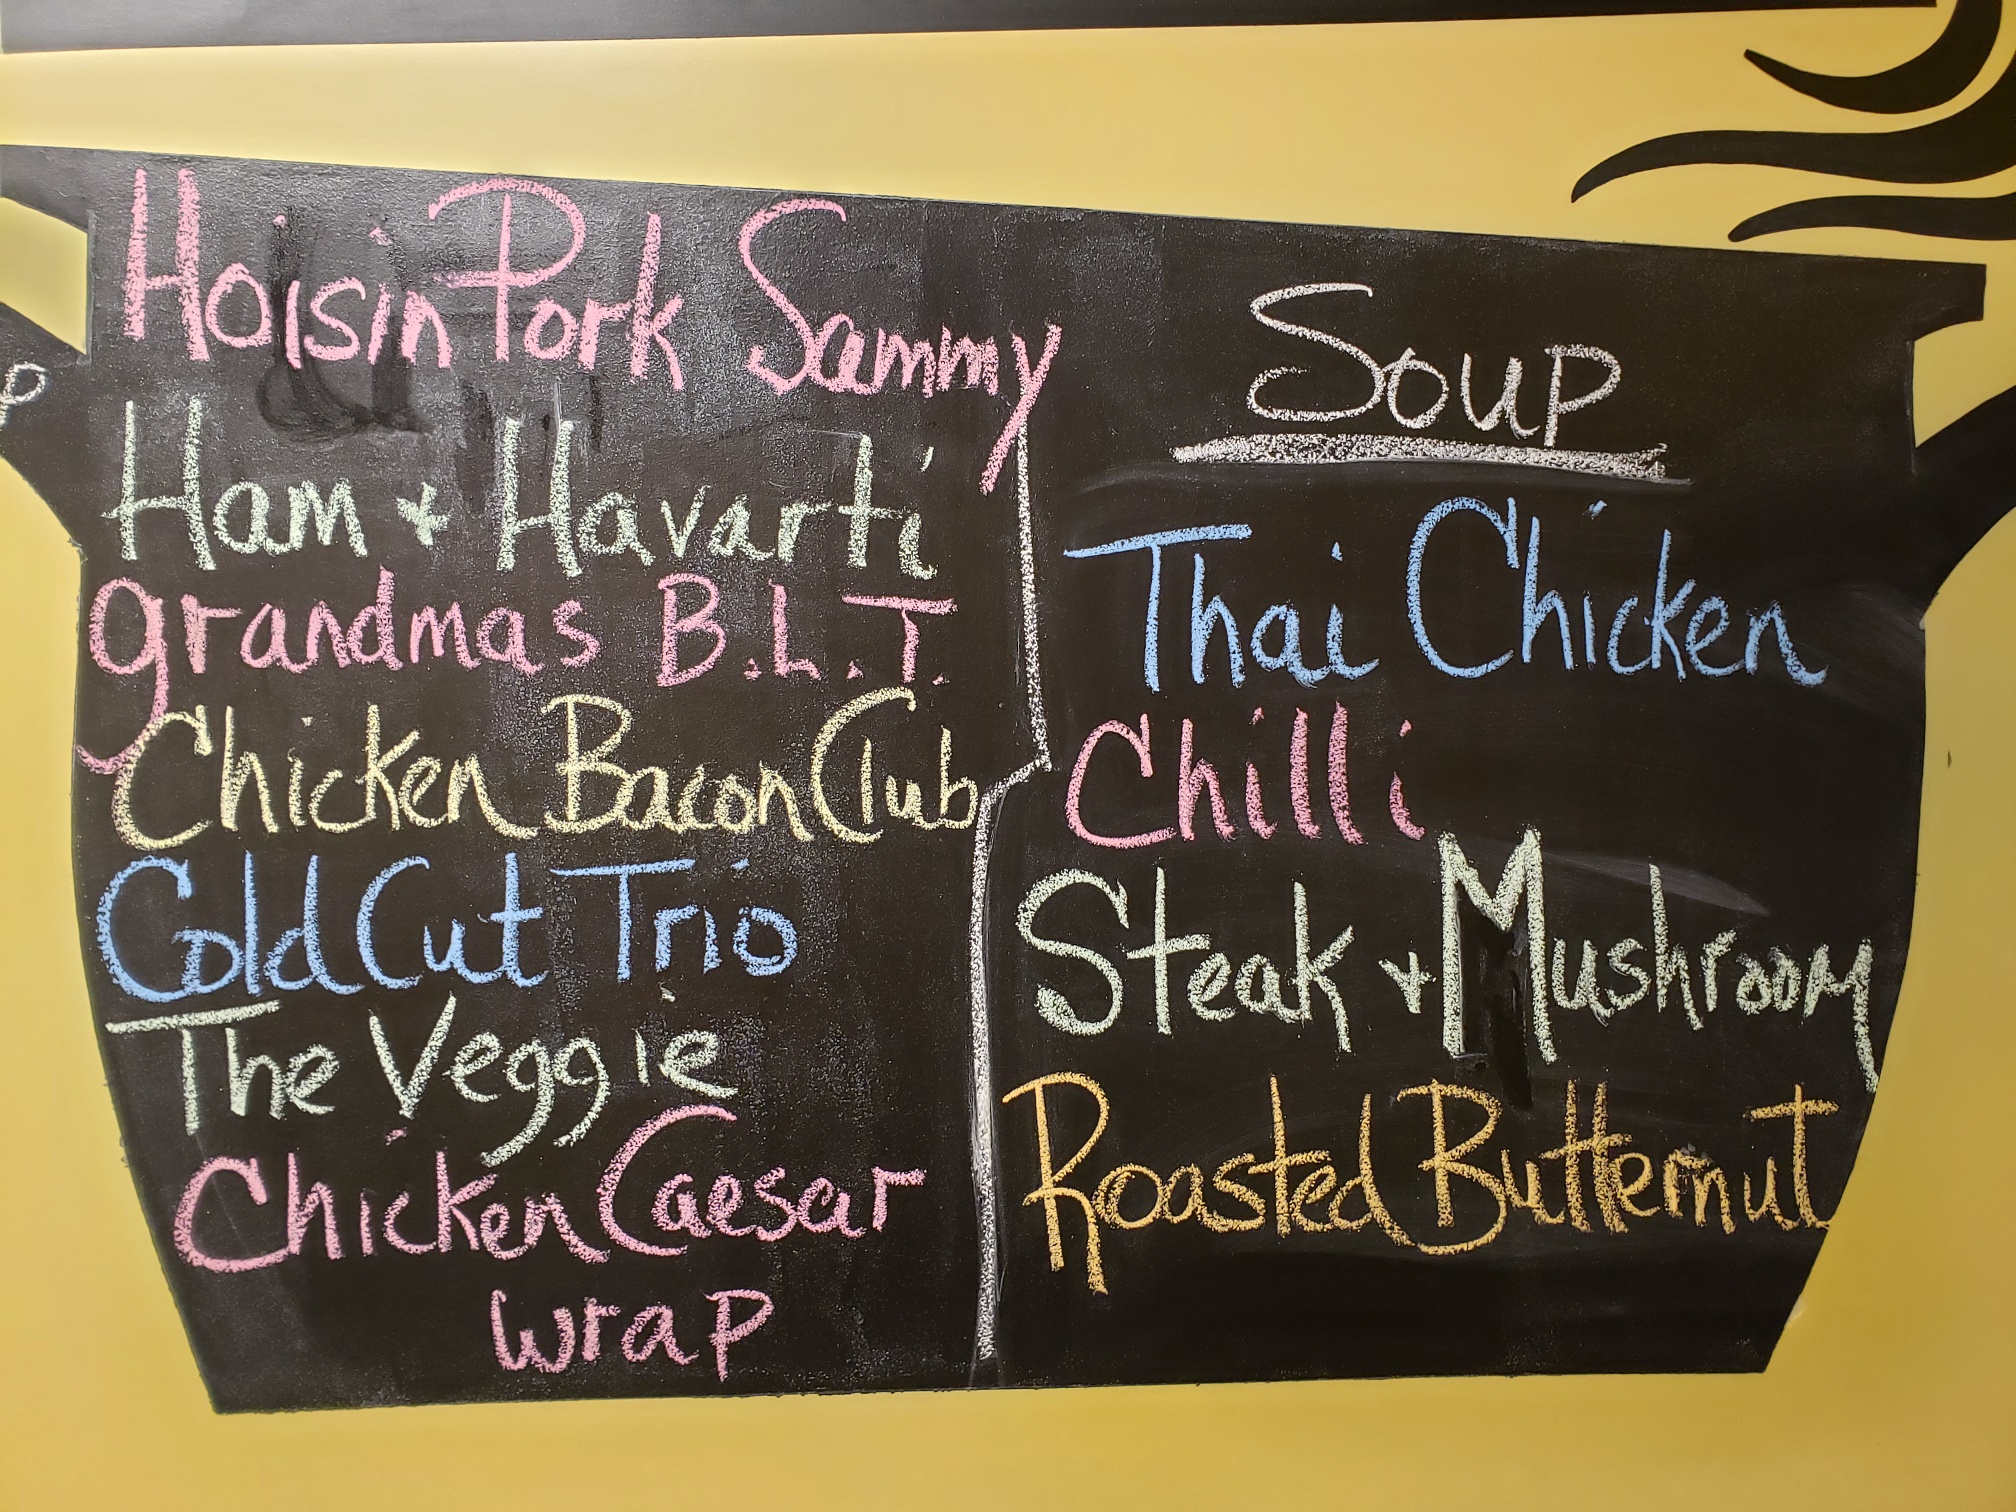 Hoisin Pork Sammy
Ham + Havarti
grandmas B.L.T.
Chicken Bacon Club
Cold Cut Trio
The Veggie
Chicken Caesar
wrap
Soup
Thai Chicken
Chilli
Steak + Mushroom
Roasted Butternut